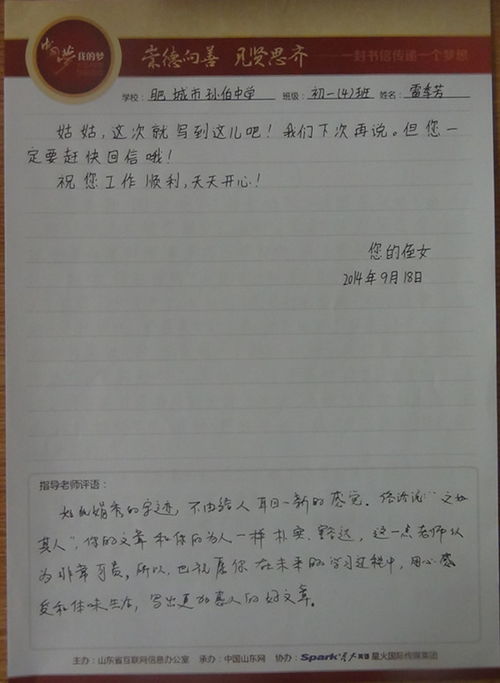 中国梦 我的梦
崇德向善 见贤思齐
一封书信传递一个梦想
学校：肥城市孙伯中学 班级：初一(4)班 姓名：雷李芳
姑姑,这次就写到这儿吧！我们下次再说。但您一
定要赶快回信哦！
祝您工作顺利,天天开心！
您的侄女
2014年9月18日
指导老师评语：
娟秀的字迹，不由给人耳目一新的感觉。俗话说"文如
其人",你的文章和你的为人一样朴实、豁达，这一点老师认
为非常可贵。所以，也祝愿你在未来的学习过程中，用心感
受和体味生活，写出更加感人的好文章。
主办：山东省互联网信息办公室 承办：中国山东网 协办：Spark星火英语 星火国际传媒集团